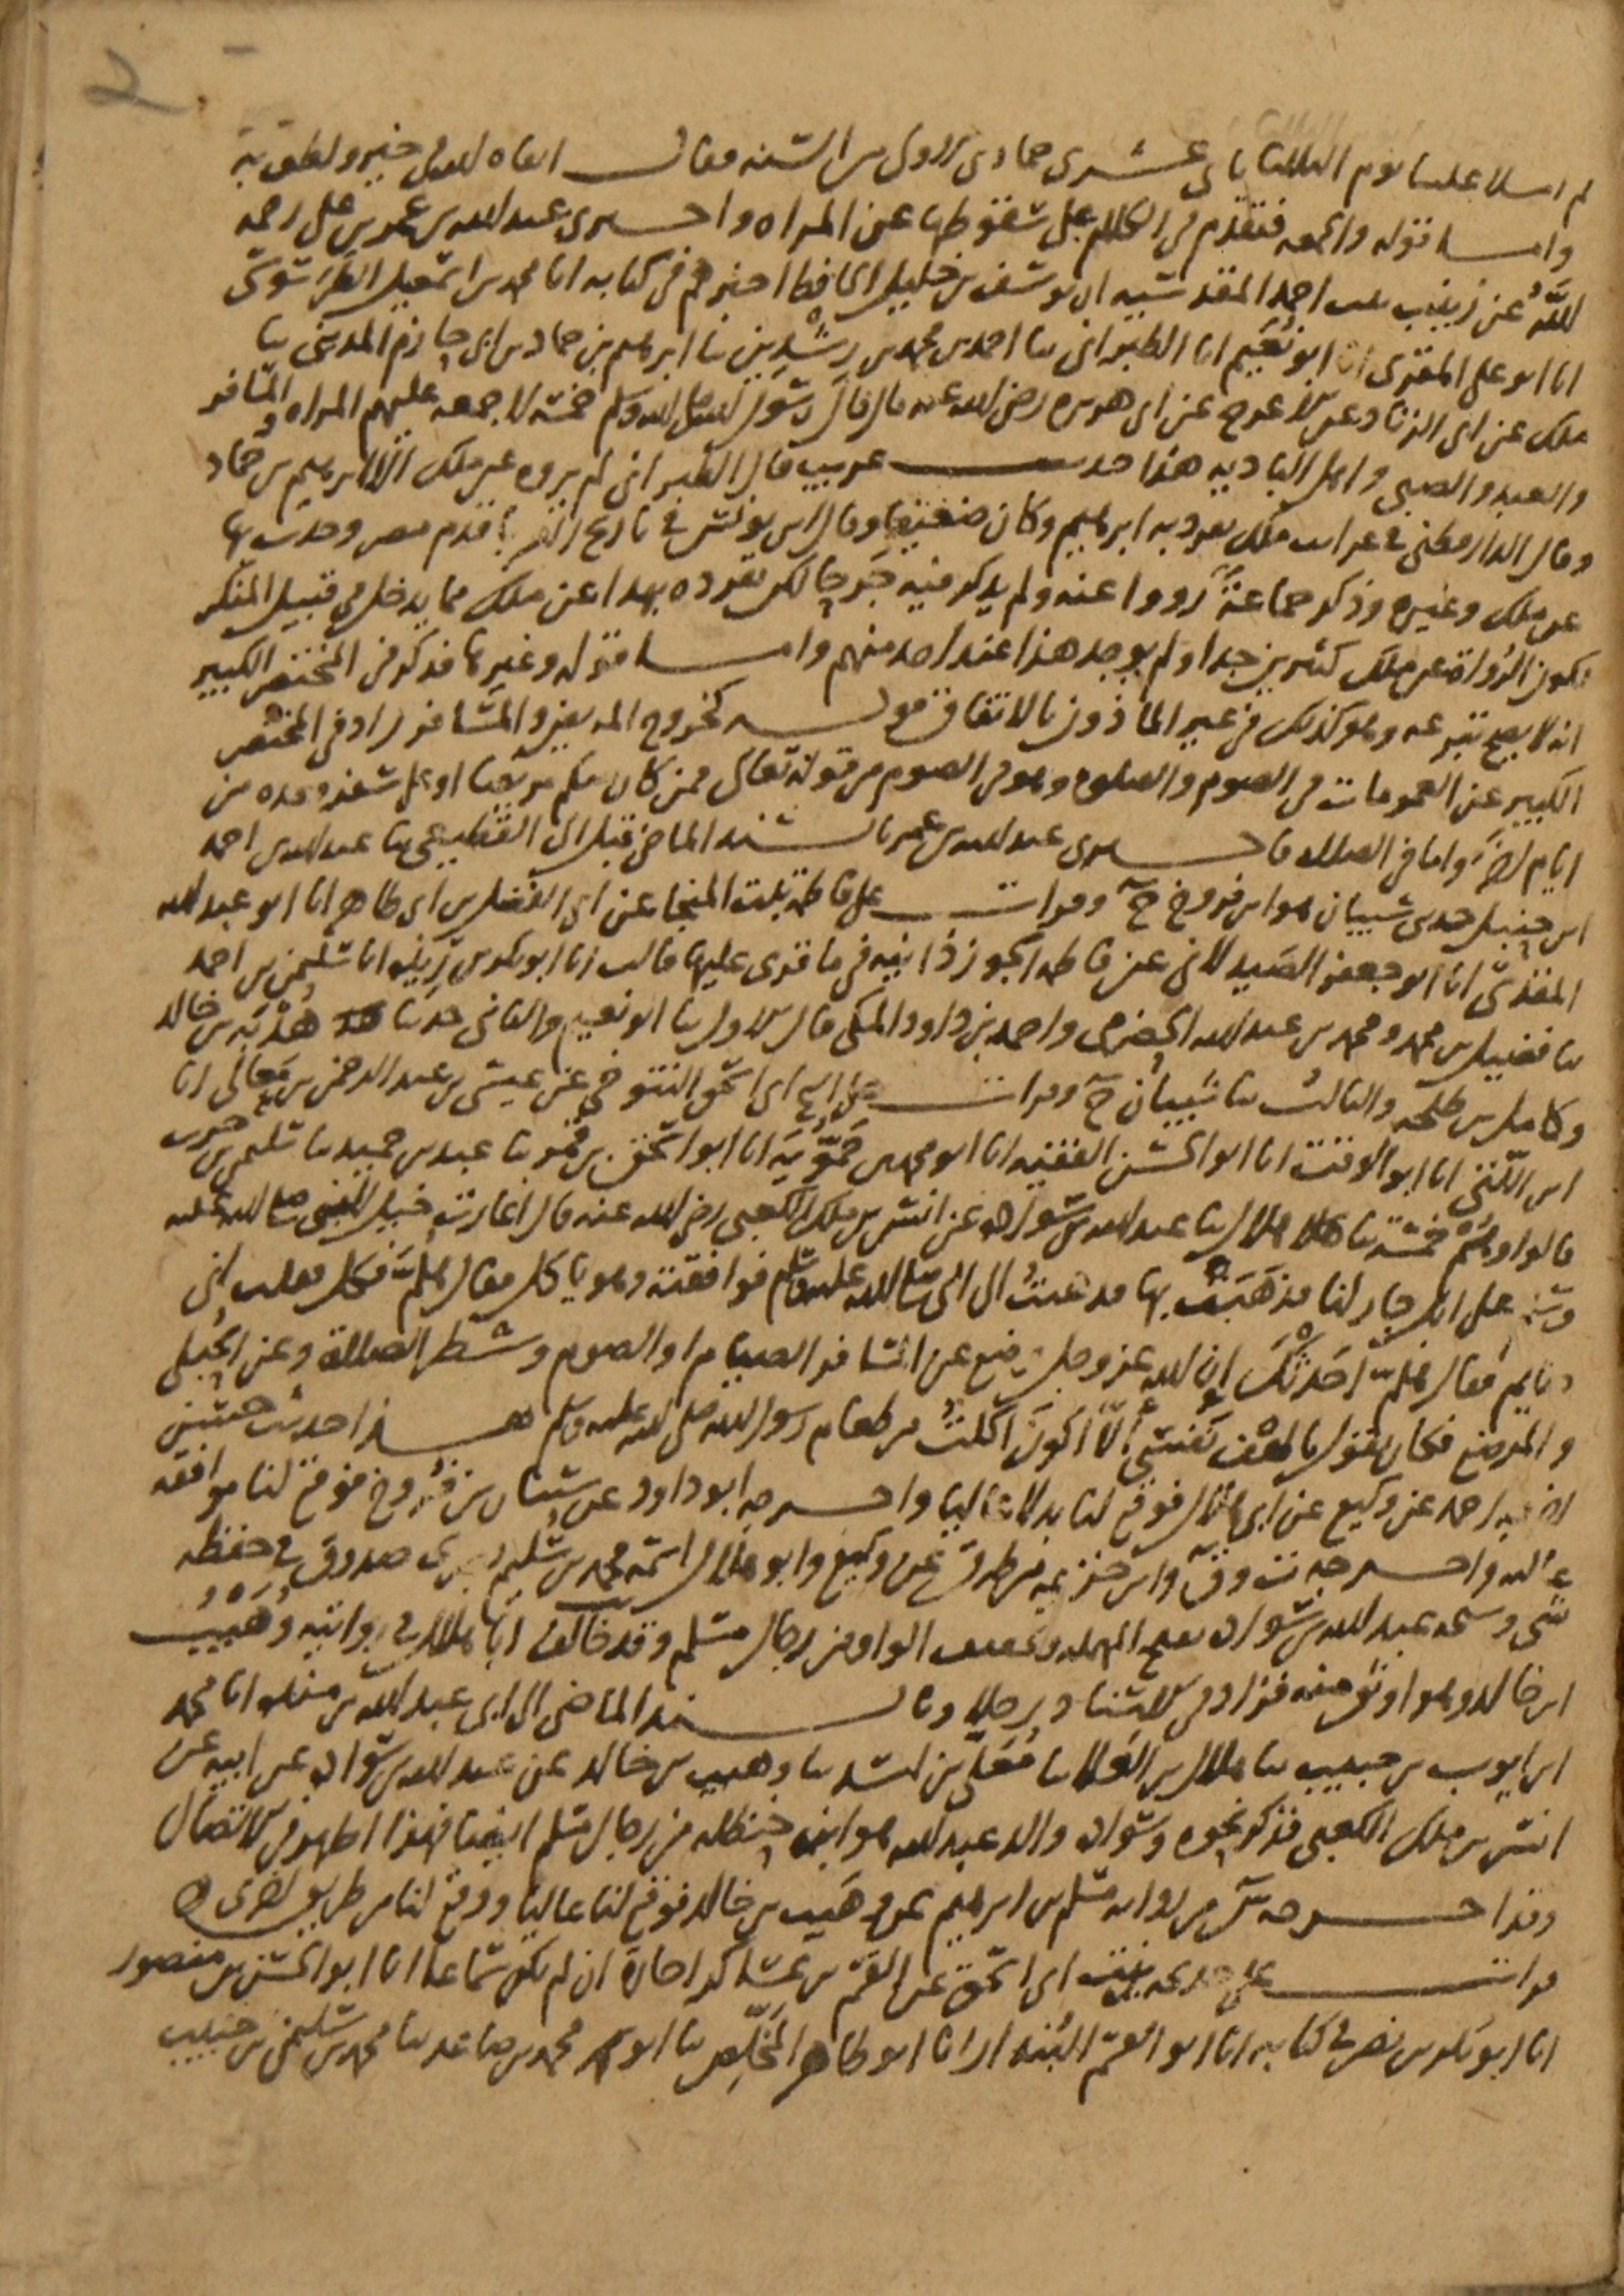 2
ثم املا علينا يوم الثلاثا ثاني عشرى جمادى الاولى من السنه فقال ابقاه الله في خير ولطف به
واما قوله والجمعه فتقدم في الكلام على سقوطها عن المراه واخبرني عبد الله بن عمر بن علي رحمه
الله عن زينب بنت احمد المقدسيه ان يوسف بن خليل الحافظ اخبرهم في كتابه انا محمد بن اسمعيل الطرسوسي
انا ابو علي المقرى انا ابو نعيم انا الطبراني نا احمد بن محمد بن رشدين نا ابرهيم بن حماد بن ابي حازم المديني نا
ملك عن ابي الزناد عن الاعرج عن ابي هريره رضي الله عنه قال قال رسول الله صلى الله وسلم خمسة لا جمعه عليهم المراه والمسافر
والعبد والصبي واهل الباديه هذا حديث غريب قال الطبراني لم يروه عن ملك الا ابرهيم بن حماد
وقال الدارقطني في غرايب ملك تفرد به ابرهيم وكان ضعيفا وقال ابن يونس في تاريخ قدم مصر وحدث بها
عن ملك وغيره وذكر جماعة رووا عنه ولم يذكر فيه جرحا لكن تفرده بهذا عن ملك مما يدخل في قبيل المنكر
لكون الرواة عن ملك كثيرين جدا ولم يوجد هذا عند احد منهم واما قوله وغيرها فذكر في المختصر الكبير
انه لا يصح تبرعه وهو كذلك في غير الماذون بالاتفاق قوله كخروج المريض والمسافر زاد في المختصر
الكبير عن العمومات في الصوم والصلوه وهو في الصوم من قوله تعالى فمن كان منكم مريضا او على سفر فعده من
ايام اخر واما في الصلاه فاخبرني عبد الله بن عمر بالسند الماضي قبل الى القطيعي نا عبد الله بن احمد
ابن حنبل حدثني شيبان هو ابن فروخ ح وقرات على فاطمة بنت المنجا عن ابي الفضل بن ابي طاهر انا ابو عبد الله
المقدسي انا ابو جعفر الصيدلاني عن فاطمه الجوزذانيه في ما قرى عليها قالت انا ابو بكر بن ريذه انا سليمن بن احمد
نا فضيل بن محمد ومحمد بن عبد الله الحضرمي واحمد بن داود المكي قال الاول نا ابو نعيم والثاني حدثنا هدبة بن خالد
وكامل بن طلحه والثالث نا شيبان ح وقرات على ابي اسحق التنوخي عن عيسى بن عبد الرحمن بن معالي انا
ابن اللتي انا ابو الوقت انا ابو الحسن الفقيه انا ابو محمد بن حمويه انا ابو اسحق بن خزيم نا عبد بن حميد نا سليمن بن حرب
قالوا وهم خمسة نا ابو هلال نا عبد الله بن سواده عن انس بن ملك الكعبي رضي الله عنه قال اغارت خيل النبي صلى الله عليه
وسلم على ابل جار لنا فذهبت بها فدعيت الى النبي صلى الله عليه وسلم فوافقته وهو ياكل فقال هلم فكل فقلت اني
صايم فقال هلم احدثك ان الله عز وجل وضع عن المسافر الصيام او الصوم وشطر الصلاة وعن الحبلى
والمرضع فكان يقول يا لهف نفسي الا اكون اكلت من طعام رسول الله صلى الله عليه وسلم هذا حديث حسن
اخرجه احمد عن وكيع عن ابي هلال فوقع لنا بدلا عاليا واخرجه ابو داود عن شيبان بن فروخ فوقع لنا موافقه
عاليه واخرجه ت وق وابن خزيمه من طرق عن وكيع وابو هلال اسمه محمد بن سليم بصري صدوق في حفظه
شي وشيخه عبد الله بن سواده بفتح المهمله وتخفيف الواو من رجال مسلم وقد خالف ابا هلال في روايته وهيب
ابن خالد وهو اوثق منه فزاد في الاسناد رجلا وبالسند الماضي الى ابي عبد الله بن منده انا محمد
ابن ايوب بن حبيب نا هلال بن العلا نا معلى بن اسد نا وهيب بن خالد عن عبد الله بن سواده عن ابيه عن
انس بن ملك الكعبي فذكر نحوه وسواده والد عبد الله هو ابن حنظله من رجال مسلم ايضا فهذا اظهر في الاتصال
وقد اخرجه س من روايه مسلم بن ابرهيم عن وهيب بن خالد فوقع لنا عاليا ووقع لنا من طريق اخرى
قرات على خديجه بنت ابي اسحق عن القسم بن عساكر اجازة ان لم يكن سماعا انا ابو الحسن بن منصور
انا ابو بكر بن نصر في كتابه انا ابو القسم البندار انا ابو طاهر المخلص نا ابو محمد بن صاعد نا محمد بن سليمن بن حبيب